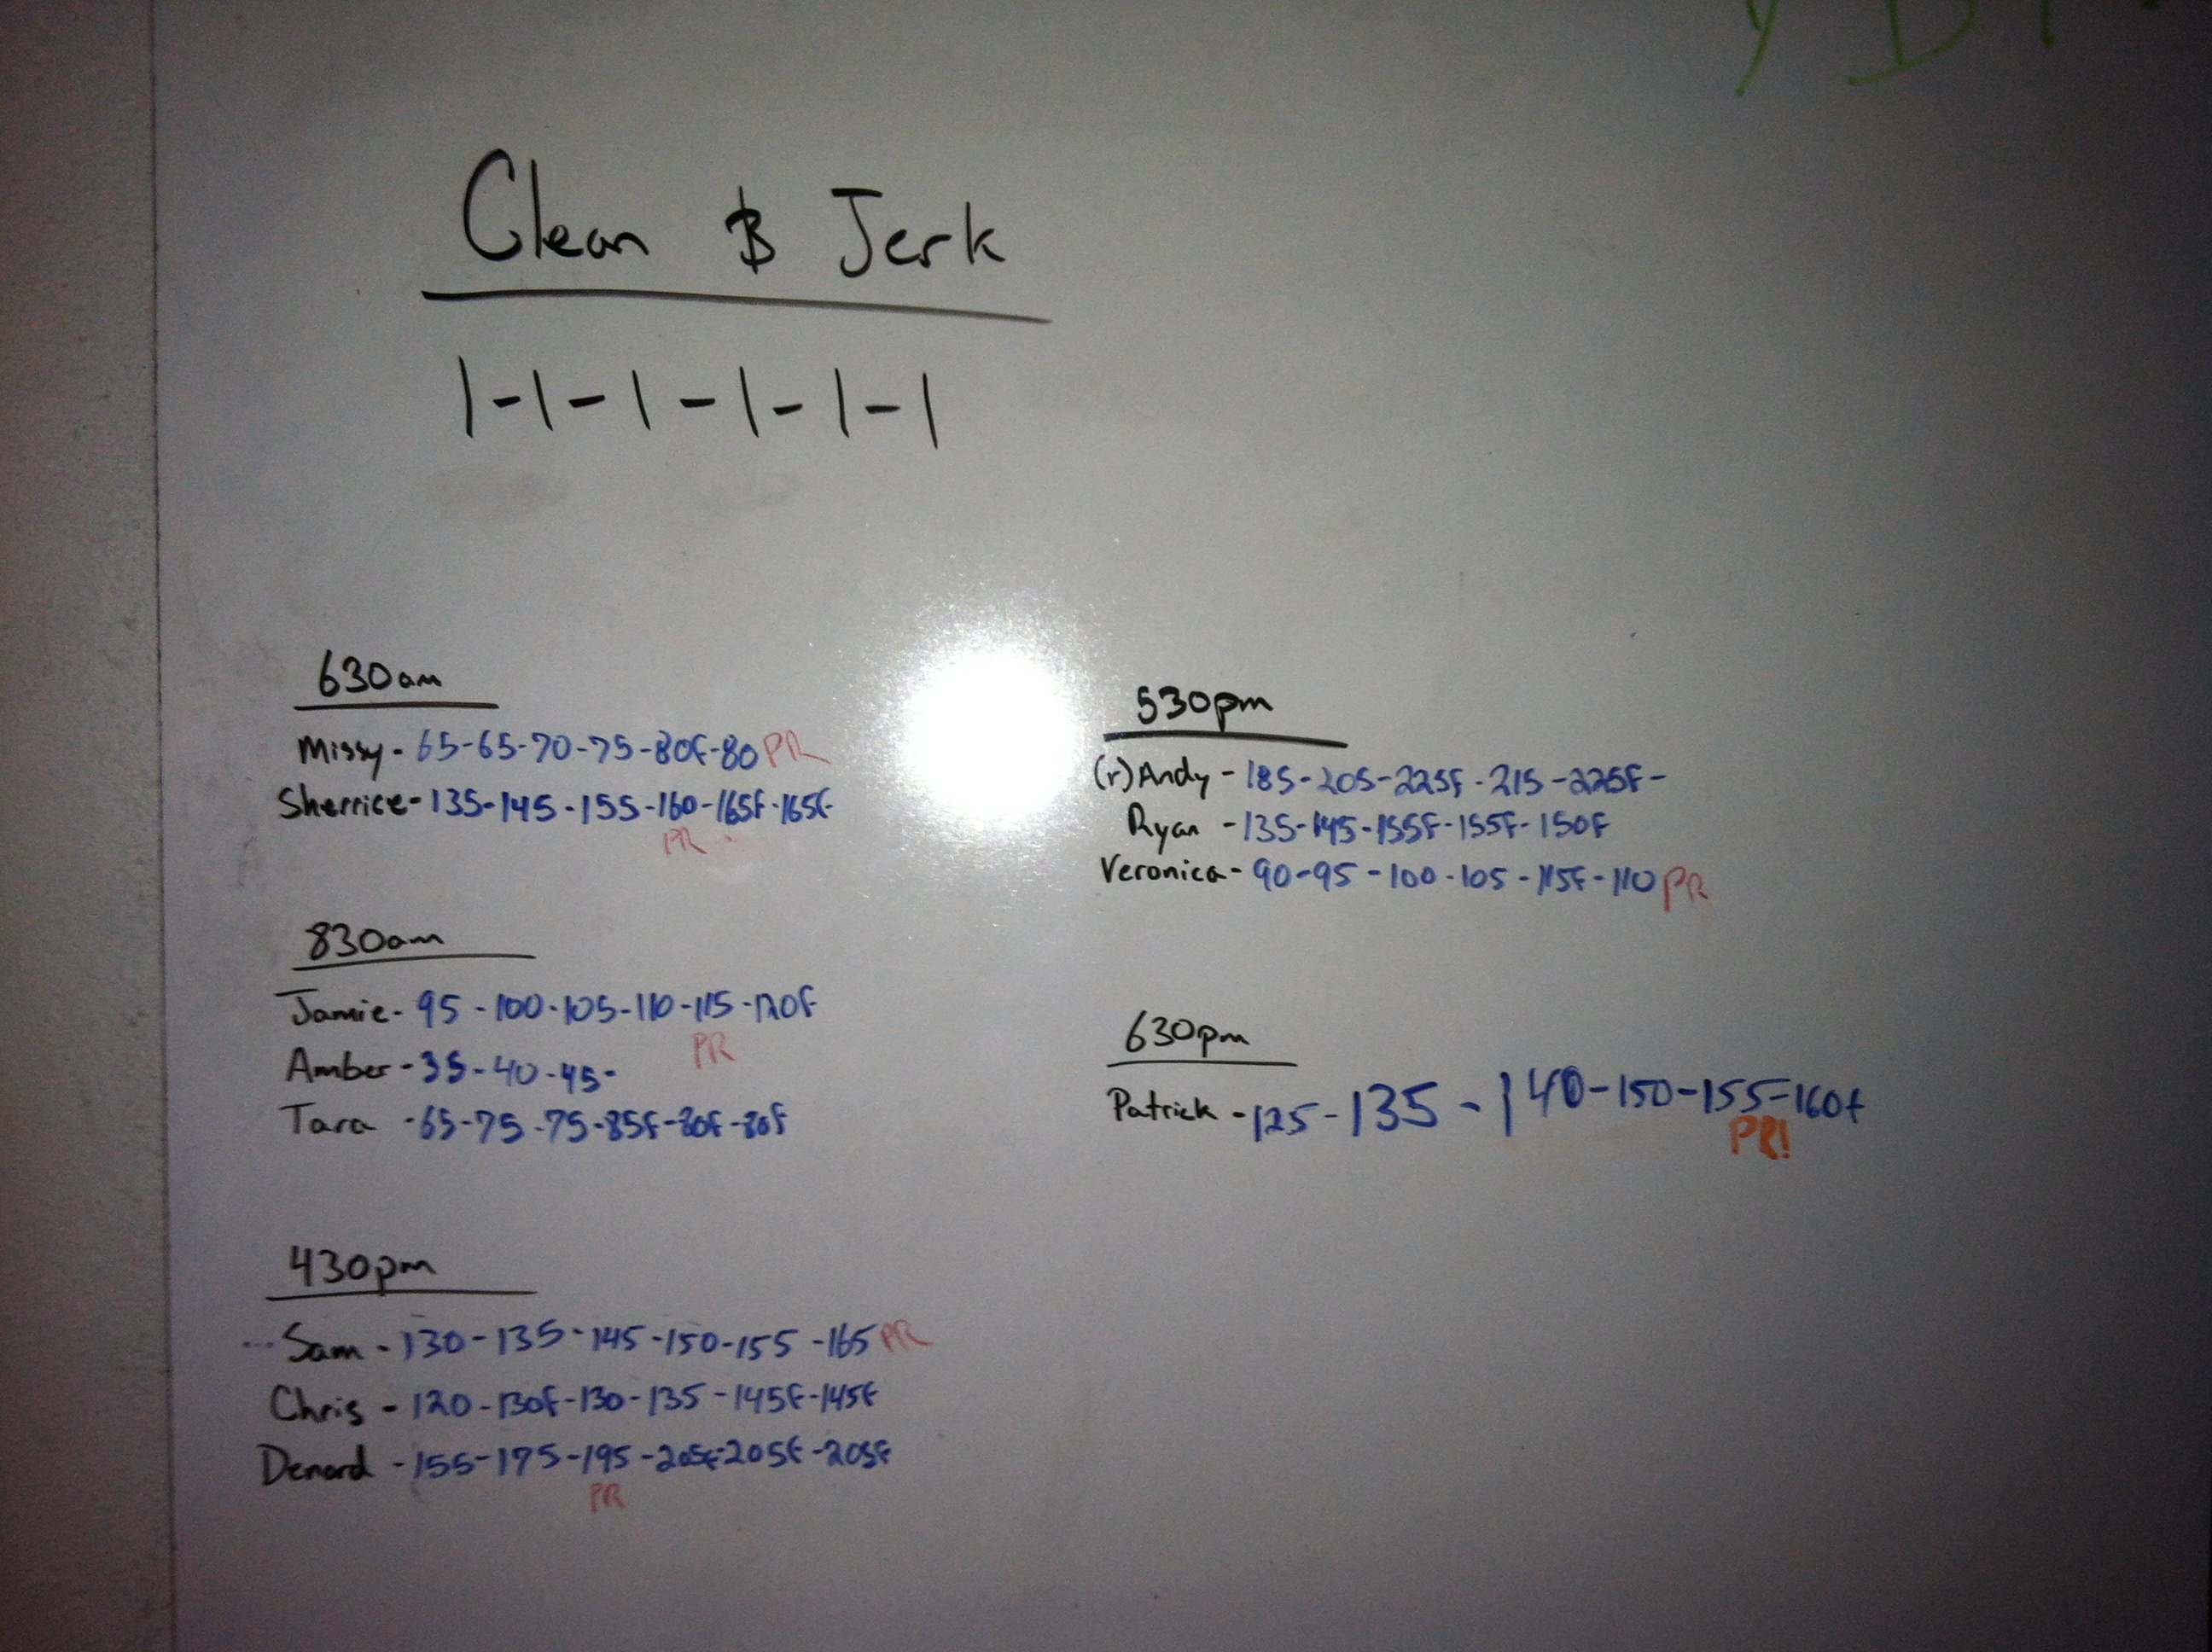 Clean & Jerk
1-1-1-1-1-1
630am
Missy - 65-65-70-75-80f-80 PR
Sherrice - 135-145-155-160-165f-165f
PR
830am
Jamie - 95-100-105-110-115-120f
PR
Amber - 35-40-45-
Tara - 65-75-75-85f-80f-80f
430pm
Sam - 130-135-145-150-155-165 PR
Chris - 120-130f-130-135-145f-145f
Denard - 155-175-195-205f-205f-205f
PR
530pm
(r) Andy - 185-205-225f-215-225f-
Ryan - 135-145-155f-155f-150f
Veronica - 90-95-100-105-115f-110 PR
630pm
Patrick - 125-135-140-150-155-160f
PR!